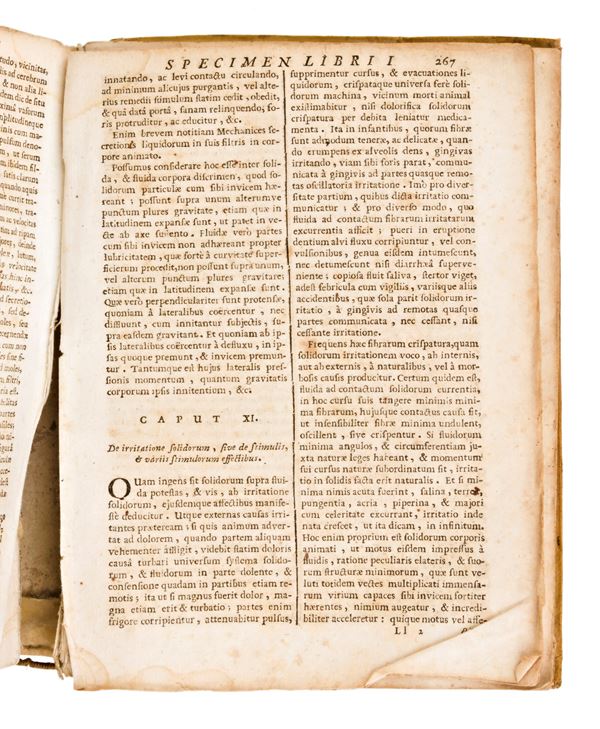 tudo, vicinitas,
SPECIMEN LIBRI I
267
innatando, ac levi contactu circulando,
ad minimum alicujus purgantis, vel alte-
rius remedii stimulum statim cedit, obedit,
& quâ datâ portâ, sanam relinquendo, fo-
ris protruditur, ac educitur, &c.
Enim brevem notitiam Mechanices se-
cretionis liquidorum in suis filtris in cor-
pore animato.
Possumus considerare hoc esse inter soli-
da, & fluida corpora discrimen, quod so-
lidorum particulæ cum sibi invicem hæ-
reant; possunt supra unum alterumve
punctum plures gravitate, etiam quæ in
latitudinem expansæ sunt, ut patet in ve-
cte ab axe suspento. Fluidæ verò partes
cum sibi invicem non adhæreant propter
lubricitatem, quæ fortè à curvitate super-
ficierum procedit, non possunt supra unum,
vel alterum punctum plures gravitare;
etiam quæ in latitudinem expansæ sunt.
Quæ verò perpendiculariter sunt protensæ,
quoniam à lateralibus coërcentur, nec
diffluunt, cum innitantur subjectis, su-
pra easdem gravitant. Et quoniam ab ip-
sis lateralibus coërcentur à defluxu, in ip-
sas quoque premunt, & invicem premun-
tur. Tantumque est hujus lateralis pres-
sionis momentum, quantum gravitatis
corporum ipsis innitentium, &c.
CAPUT XI.
De irritatione solidorum, sive de stimulis,
& variis stimulorum effectibus.
QUam ingens sit solidorum supra flui-
da potestas, & vis, ab irritatione
solidorum, ejusdemque affectibus manife-
stè deducitur. Utque externas causas irri-
tantes præteream; si quis animum adver-
tat ad dolorem, quando partem aliquam
vehementer affligit, videbit statim doloris
causâ turbari universum systema solido-
rum, & fluidorum in parte dolente, &
consensione quadam in partibus etiam re-
motis; ita ut si magnus fuerit dolor, ma-
gna etiam erit & turbatio; partes enim
frigore corripientur, attenuabitur pulsus,
supprimentur cursus, & evacuationes li-
quidorum, crispataque universa ferè soli-
dorum machina, vicinum morti animal
existimabitur, nisi dolorifica solidorum
crispatura per debita leniatur medica-
menta. Ita in infantibus, quorum fibræ
sunt admodum teneræ, ac delicatæ, quan-
do erumpens ex alveolis dens, gingivas
irritando, viam sibi foris parat, communica-
ta à gingivis ad partes quasque remo-
tas oscillatoria irritatione. Imò pro diver-
sitate partium, quibus dicta irritatio com-
municatur; & pro diverso modo, quo
fluida ad contactum fibrarum irritatarum
excurrentia afficit; pueri in eruptione
dentium alvi fluxu corripiuntur, vel con-
vulsionibus, genua eisdem intumescunt,
nec detumescunt nisi diarrhæâ superve-
niente; copiosa fluit saliva, stertor viget,
adest febricula cum vigiliis, variisque aliis
accidentibus, quæ sola parit solidorum ir-
ritatio, à gingivis ad remotas quasque
partes communicata, nec cessant, nisi
cessante irritatione.
Frequens hæc fibrarum crispatura, quam
solidorum irritationem voco, ab internis,
aut ab externis, à naturalibus, vel à mor-
bosis causis producitur. Certum quidem est,
fluida ad contactum solidorum currentia,
in hoc cursu suis tangere minimis mini-
ma fibrarum, hujusque contactus causa fit,
ut insensibiliter fibræ minima undulent,
oscillent, sive crispentur. Si fluidorum
minima angulos, & circumferentiam ju-
xta naturæ leges habeant, & momentum
sui cursus naturæ subordinatum sit, irrita-
tio in solidis facta erit naturalis. Et si mi-
nima nimis acuta fuerint, salina, terrea,
pungentia, acria, piperina, & majori
cum celeritate excurrant, irritatio inde
nata crescet, ut ita dicam, in infinitum.
Hoc enim proprium est solidorum corporis
animati, ut motus eisdem impressus à
fluidis, ratione peculiaris elateris, & suo-
rum structuræ minimorum, quæ sunt ve-
luti totidem vectes multiplicati immensa-
rum virium capaces sibi invicem fortiter
hærentes, nimium augeatur, & incredi-
biliter acceleretur: quique motus vel affe-
Ll 2